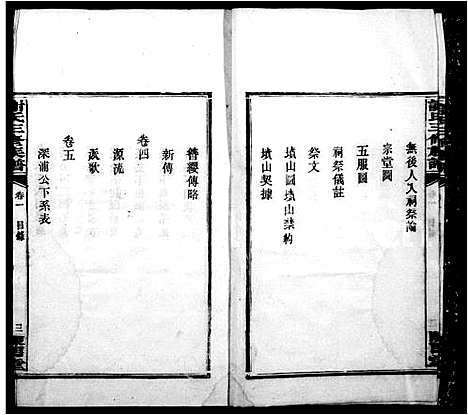 無後人入祠祭論
宗堂圖
五服圖
祠祭儀註
祭文
墳山圖墳山禁約
墳山契據
簪纓傳略
新傳
卷四
源流
派歌
卷五
深浦公下系表
謝氏三修族譜
卷一
目錄
三